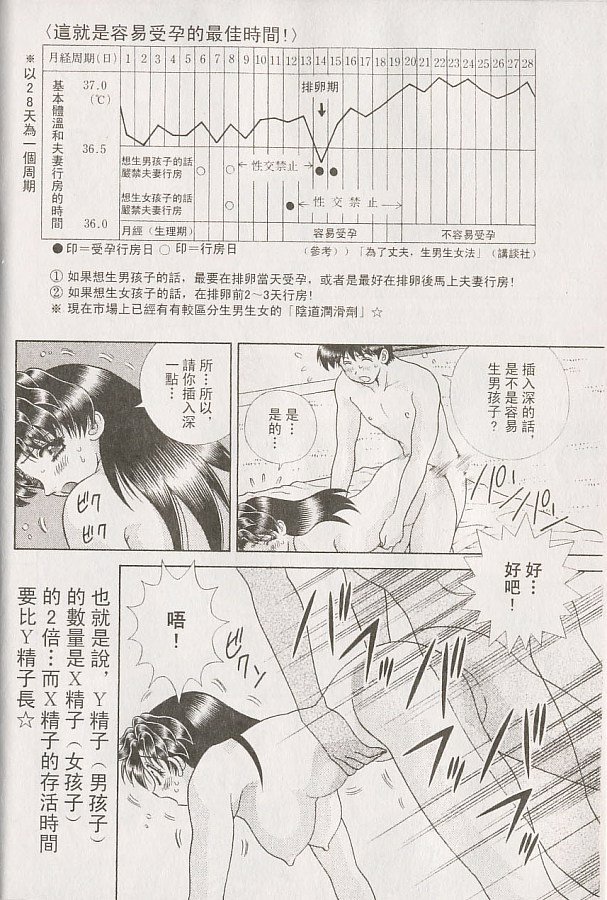 〈這就是容易受孕的最佳時間!〉
※以28天為一個周期
月経周期(日) 1 2 3 4 5 6 7 8 9 10 11 12 13 14 15 16 17 18 19 20 21 22 23 24 25 26 27 28
基本體溫和夫妻行房的時間
37.0
(℃)
排卵期
36.5
想生男孩子的話
嚴禁夫妻行房
○ ○ ←性交禁止→ ● ●
想生女孩子的話
嚴禁夫妻行房
○ ● ←性交禁止→
36.0
月經(生理期) 容易受孕 不容易受孕
●印=受孕行房日 ○印=行房日 (參考))「為了丈夫,生男生女法」(講談社)
① 如果想生男孩子的話,最要在排卵當天受孕,或者是最好在排卵後馬上夫妻行房!
② 如果想生女孩子的話,在排卵前2~3天行房!
※ 現在市場上已經有有較區分生男生女的「陰道潤滑劑」☆
所…所以,
請你插入深
一點…
ビクッ
ビクッ
插入深的話,
是不是容易
生男孩子?
是…
是的…
パン!
パン!
好…
好吧!
唔!
ビクン
也就是說,Y精子(男孩子)
的數量是X精子(女孩子)
的2倍…而X精子的存活時間
要比Y精子長☆